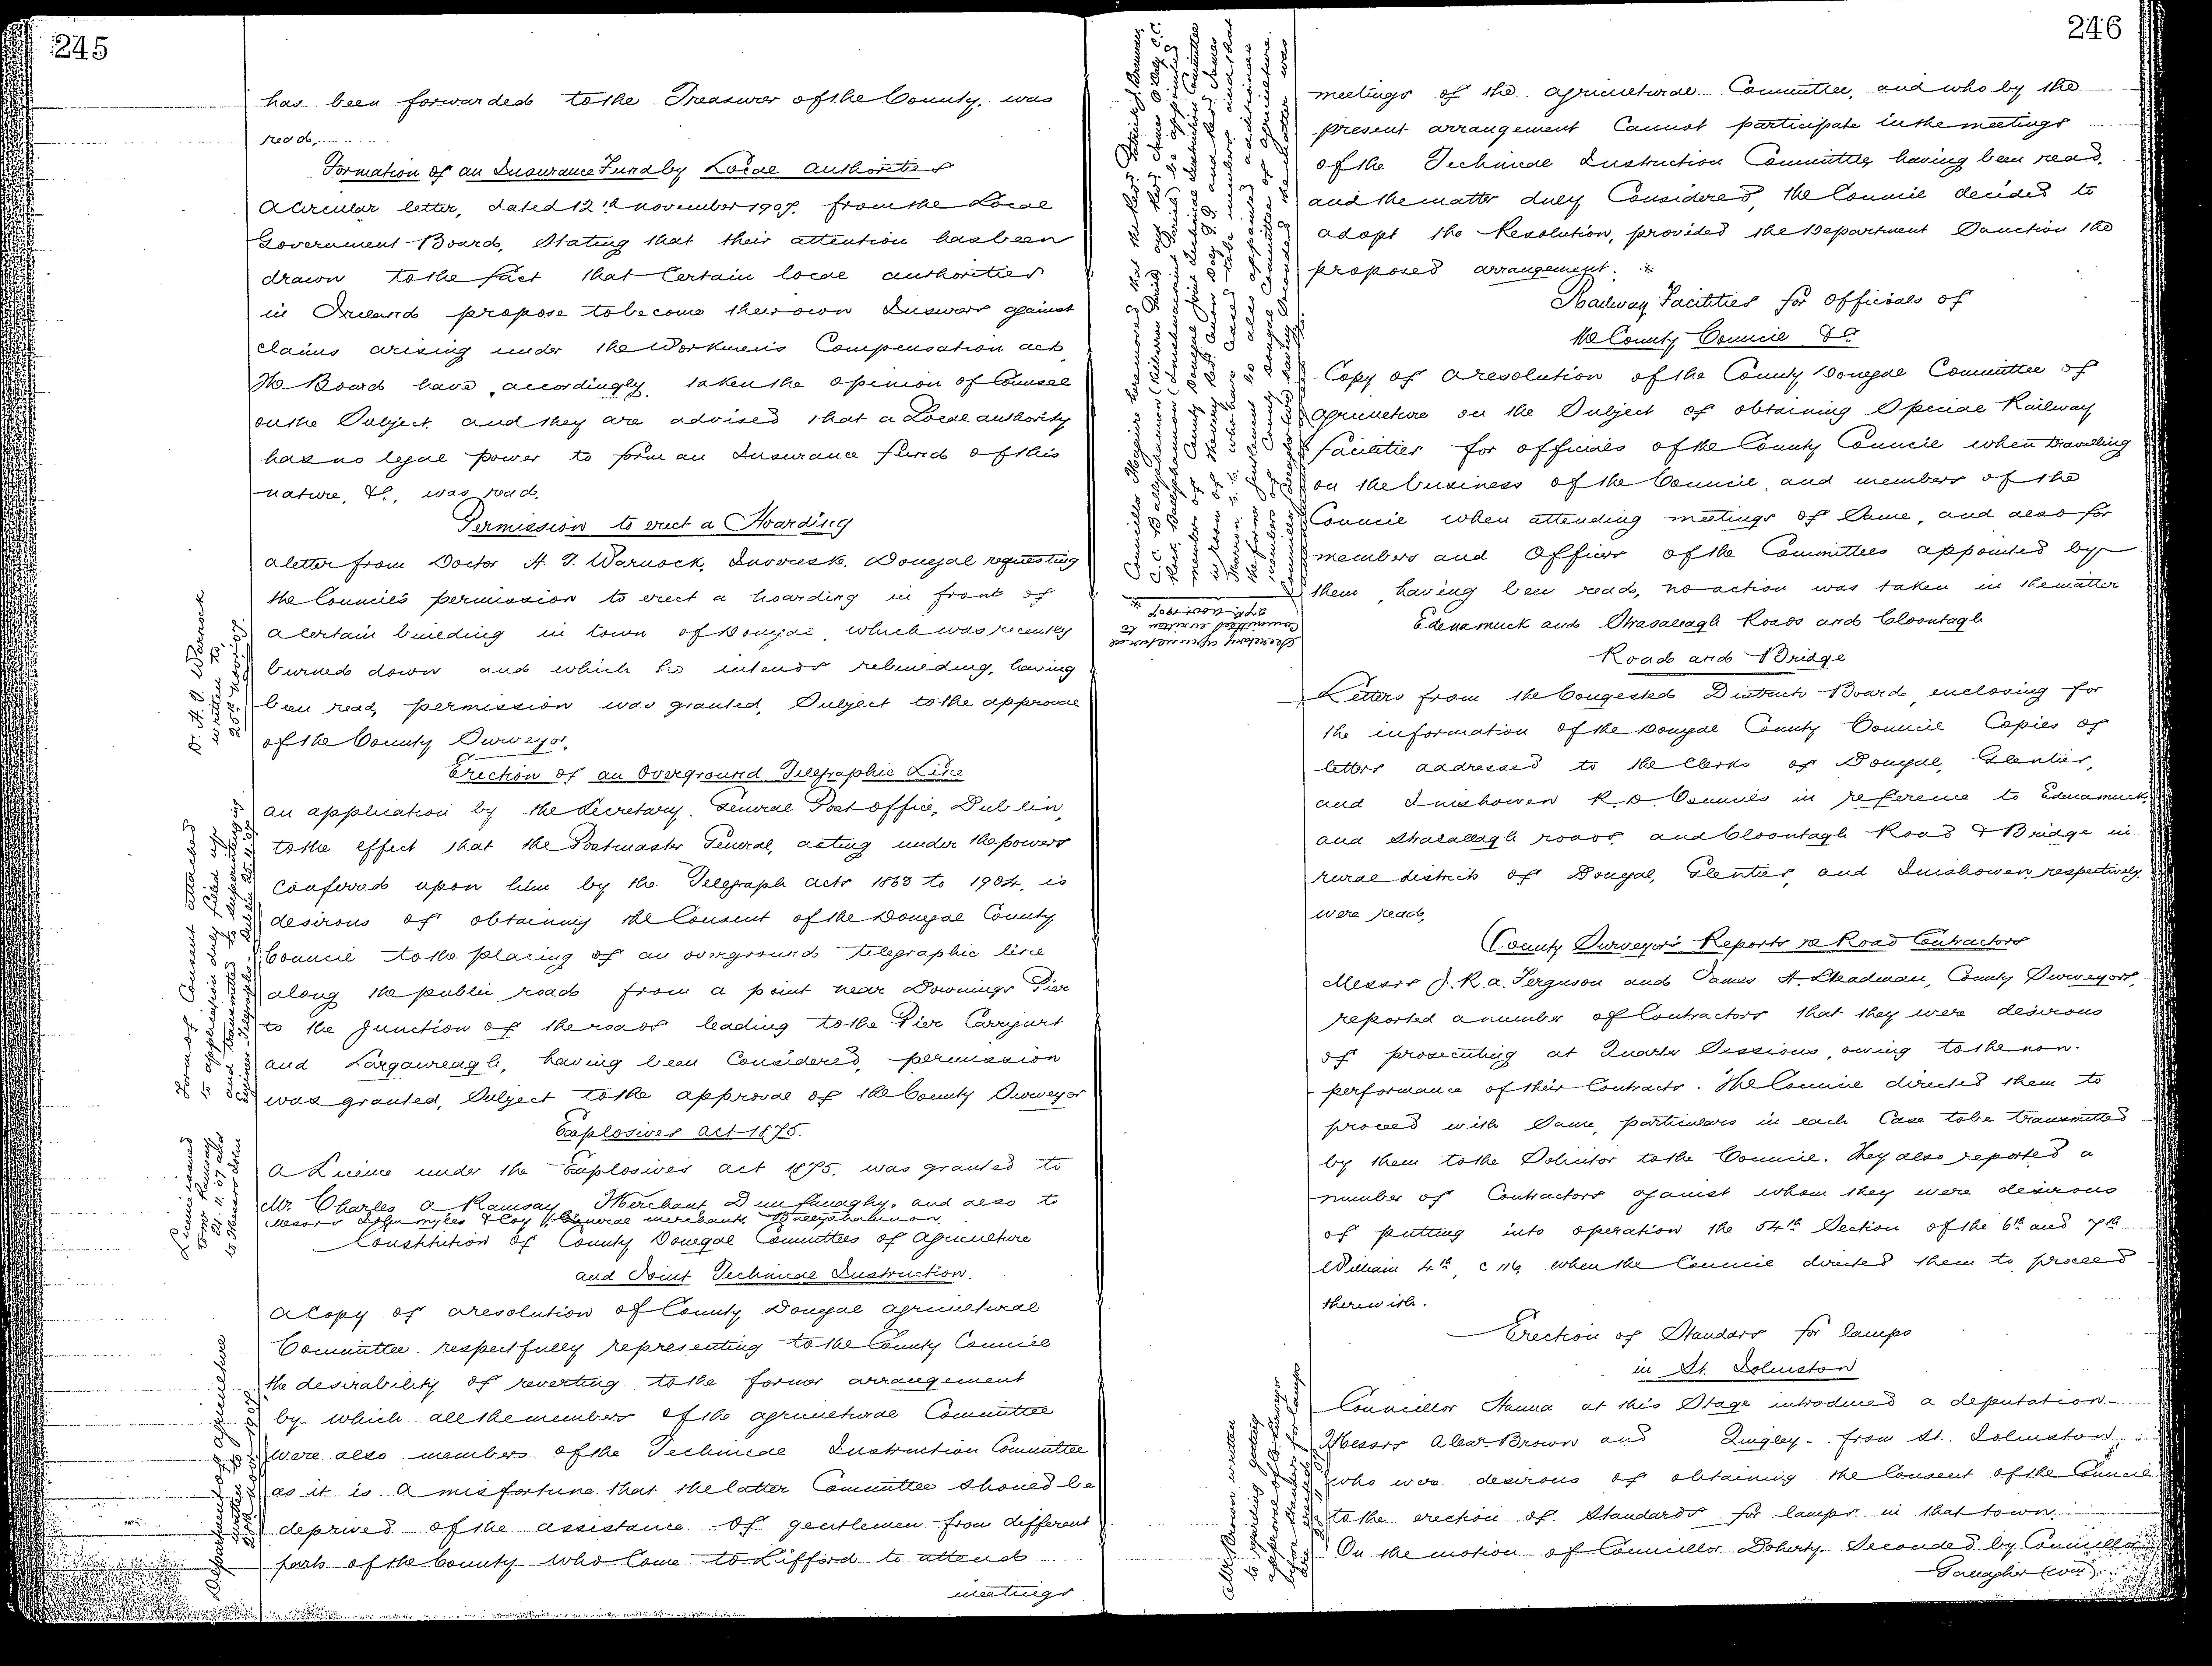 245
has been forwarded to the Treasurer of the County, was
read.
Formation of an Insurance Fund by Local Authorities
A Circular letter, dated 12th November 1907, from the Local
Government Board, Stating that their attention has been
drawn to the fact that Certain local authorities
in Ireland propose to become their own Insurers against
claims arising under the Workmen's Compensation Act,
The Board have, accordingly, taken the opinion of Counsel
on the Subject and they are advised that a Local Authority
has no legal power to form an Insurance fund of this
nature, &c., was read.
Permission to erect a Hoarding
A letter from Doctor H. T. Warnock, Donegal requesting
the Council's permission to erect a hoarding in front of
a certain building in town of Donegal, which was recently
burned down and which he intends rebuilding, having
been read, permission was granted, Subject to the approval
of the County Surveyor.
Dr. H. T. Warnock
written to,
25th Nov: 07.
Erection of an Overground Telegraphic Line
An application by the Secretary, General Post Office, Dublin,
to the effect that the Postmaster General, acting under the powers
Conferred upon him by the Telegraph Acts 1863 to 1904, is
desirous of obtaining the Consent of the Donegal County
Council to the placing of an overground telegraphic line
along the public road from a point near Downings Pier
to the Junction of the roads leading to the Pier Carrigart
and Largawreagh, having been Considered, permission
was granted, Subject to the approval of the County Surveyor
Form of Consent attached
to application duly filled up
and transmitted to Superintending
Engineer Telegraphs Dublin 25.11.07
Explosives Act 1875.
A Licence under the Explosives Act 1875, was granted to
Mr. Charles A Ramsay, Merchant, Dunfanaghy, and also to
Messrs John Myles & Coy Ltd General merchants Ballyshannon.
Licence issued
to Mr Ramsay
21.11.07 also
to Messrs John
Constitution of County Donegal Committees of Agriculture
and Joint Technical Instruction.
A Copy of a resolution of County Donegal Agricultural
Committee respectfully representing to the County Council
the desirability of reverting to the former arrangement
by which all the members of the Agricultural Committee
were also members of the Technical Instruction Committee
as it is a misfortune that the latter Committee should be
deprived of the assistance of gentlemen from different
parts of the County who Come to Lifford to attend
meetings
Department of Agriculture
written to
Nov: 1907
246
meetings of the Agricultural Committee, and who by the
present arrangement Cannot participate in the meetings
of the Technical Instruction Committee, having been read,
and the matter duly Considered, the Council decided to
adopt the Resolution, provided the Department Sanction the
proposed arrangement. *
Councillor Maguire here moved that the Rev.
Secretary Agricultural
Committee written to
27th Nov: 1907
Railway Facilities for Officials of
the County Council &c.
Copy of a resolution of the County Donegal Committee of
Agriculture on the Subject of obtaining Special Railway
facilities for officials of the County Council when travelling
on the business of the Council, and members of the
Council when attending meetings of Same, and also for
members and Officers of the Committees appointed by
them, having been read, no action was taken in the matter
Edenamuck and Shasallagh Roads and Cloontagh
Road and Bridge
Letters from the Congested Districts Board, enclosing for
the information of the Donegal County Council Copies of
letters addressed to the Clerks of Donegal, Glenties,
and Inishowen R. D. Councils in reference to Edenamuck,
and Shasallagh roads, and Cloontagh Road & Bridge in
rural districts of Donegal, Glenties, and Inishowen, respectively,
were read,
County Surveyors' Reports re Road Contractors
Messrs J. R. A. Ferguson and James H. Steadman, County Surveyors,
reported a number of Contractors that they were desirous
of prosecuting at Quarter Sessions, owing to the non-
performance of their Contracts. The Council directed them to
proceed with Same, particulars in each Case to be transmitted
by them to the Solicitor to the Council. They also reported a
number of Contractors against whom they were desirous
of putting into operation the 54th Section of the 6th and 7th
William 4th, c 116, when the Council directed them to proceed
therewith.
Erection of Standars for lamps
in St. Johnston
Councillor Hanna at this Stage introduced a deputation-
Messrs Alex. Brown and Quigley- from St. Johnston,
who were desirous of obtaining the Consent of the Council
to the erection of Standards for lamps in that town.
On the motion of Councillor Doherty, Seconded by Councillor
Gallagher (Wm),